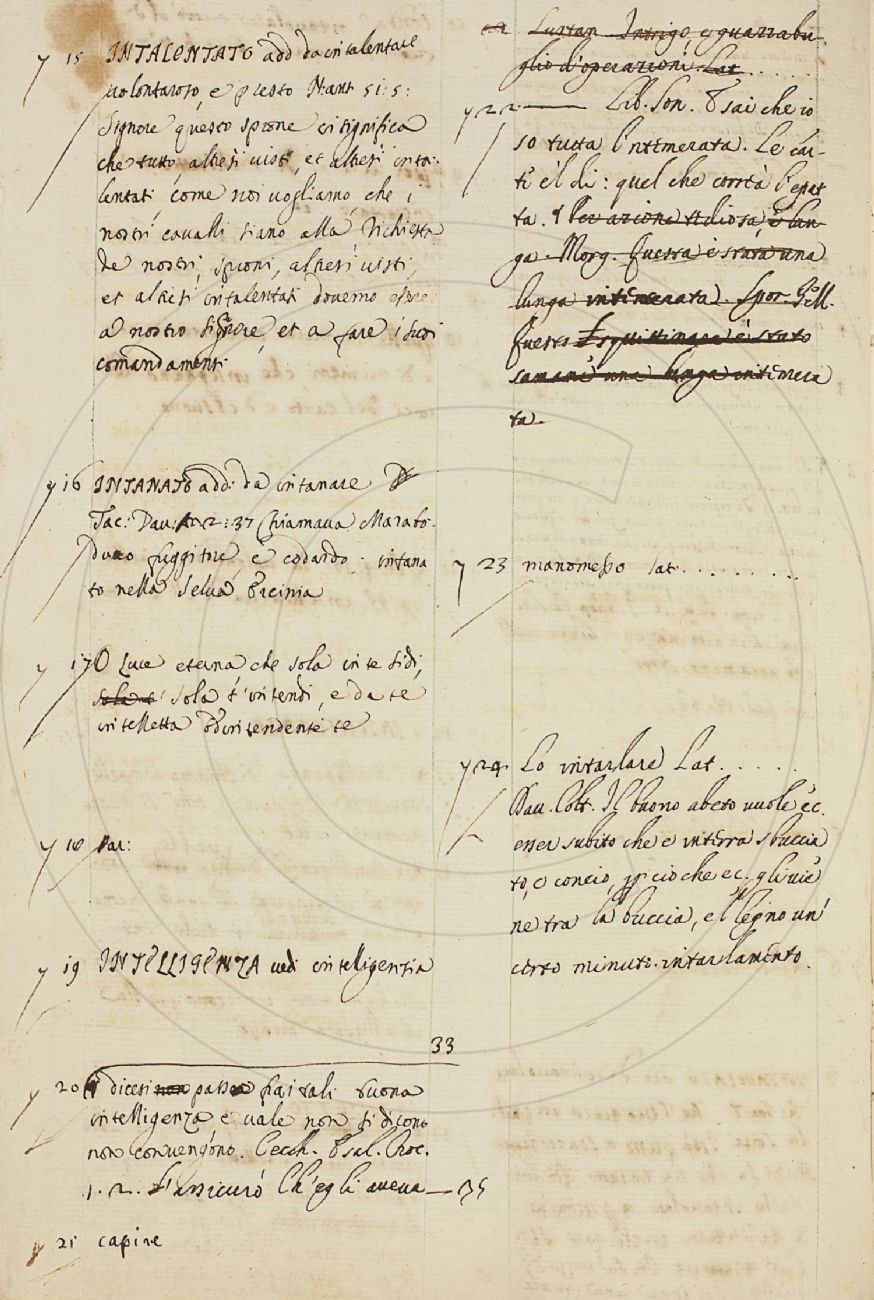 15 INTALENTATO add da intalentare
volontaroso, e presto N: ant 51: 5:
Signore questo spione ci significa
che tutto, altresì visti, et altresì inta-
lentati, come noi vogliamo, che i
nostri cavalli siano alla richiesta
de nostri, spioni, altresì visti,
et altresì intalentati dovemo essere
a nostro Signore, et a fare i suoi
comandamenti
16 INTANATO add: da intanare
Tac: Dav: An 2: 37 Chiamava Marabo-
duuo fuggitore, e codardo. intana
to nella Selva Ercinia
17 O Luce eterna che sola in te sidi,
sola t'intendi, e da te
intelletta ed intendente te
18 Par:
19 INTELLIGENZA vedi intelligenzia
33
20 dicesi non passa fra i tali buona
intelligenza e vale non si dicono
non convengono. Cecch. Esal. Croc.
1. 2. S'assicurò Ch'egli aveva — 35
21 capire
Lurtan Intrigo, e guazzabu
glio d'operazioni. Lat. . . . . .
22 — Lib. Son. E sai che io
so tutta l'ntemerata. Le car-
ti è l di: quel che
ta. Per azione tediosa, e lun
ga. Morg. Questa è stata una
lunga intemerata.
Questo è stato
una lunga intemera
ta.
23 manomesso lat. . . . . . . . .
24 Lo intarlare Lat. . . . . .
Dav. Colt. Il buono abeto vuole ec.
esser subito che e in terra sbuccia
to, e concio, perciò che ec. gli vie
ne tra la buccia, e l legno un
certo minuto intarlamento.